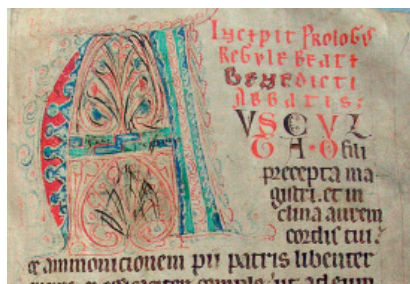 Incipit Prologus
Regule Beati
Benedicti
Abbatis:
AUSCUL
TA · O fili
precepta ma
gistri. et in
clina aurem
cordis tui.
et ammonicionem pii patris libenter